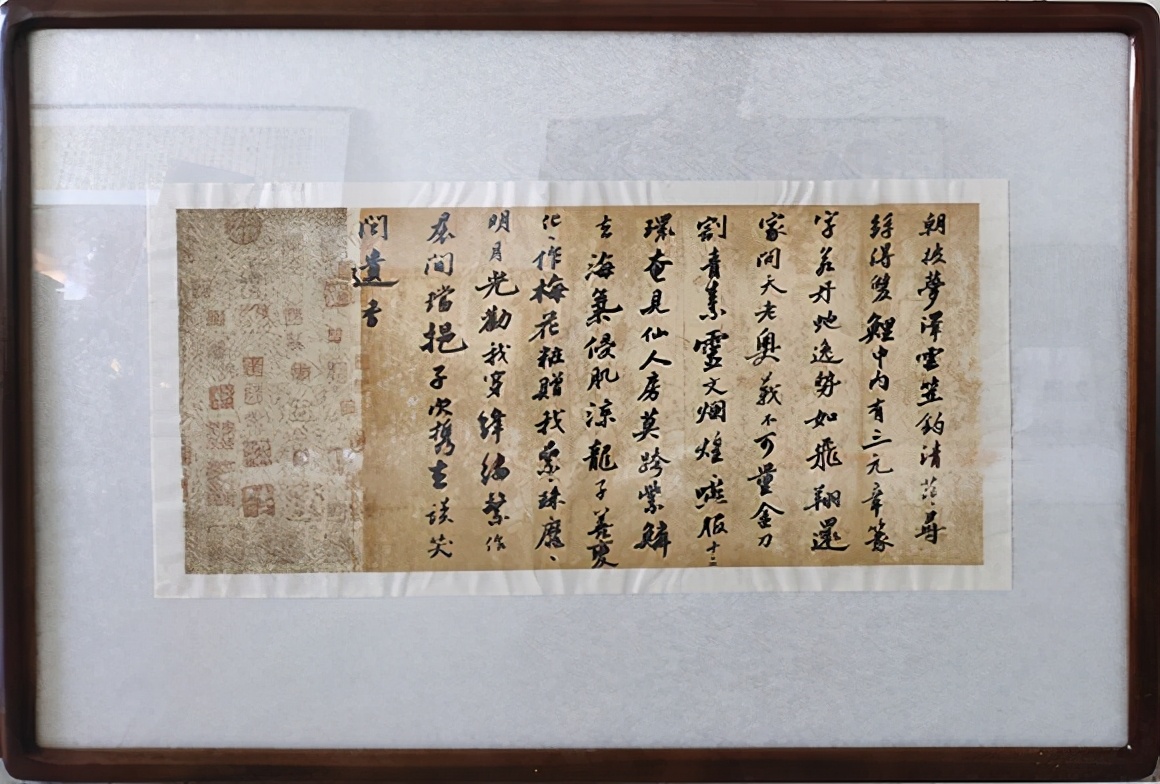 朝披夢澤雲笠釣清茫尋
絲得雙鯉中內有三元章篆
字若丹虵逸勢如飛翔還
家問天老奧義不可量金刀
割青素靈文爛煌嚥服十二
環奄見仙人房莫跨紫鱗
去海氣侵肌涼龍子善變
化、作梅花粧贈我累、珠靡、
明月光勸我穿絳縷繫作
裙間璫挹子以攜去談笑
聞遺香